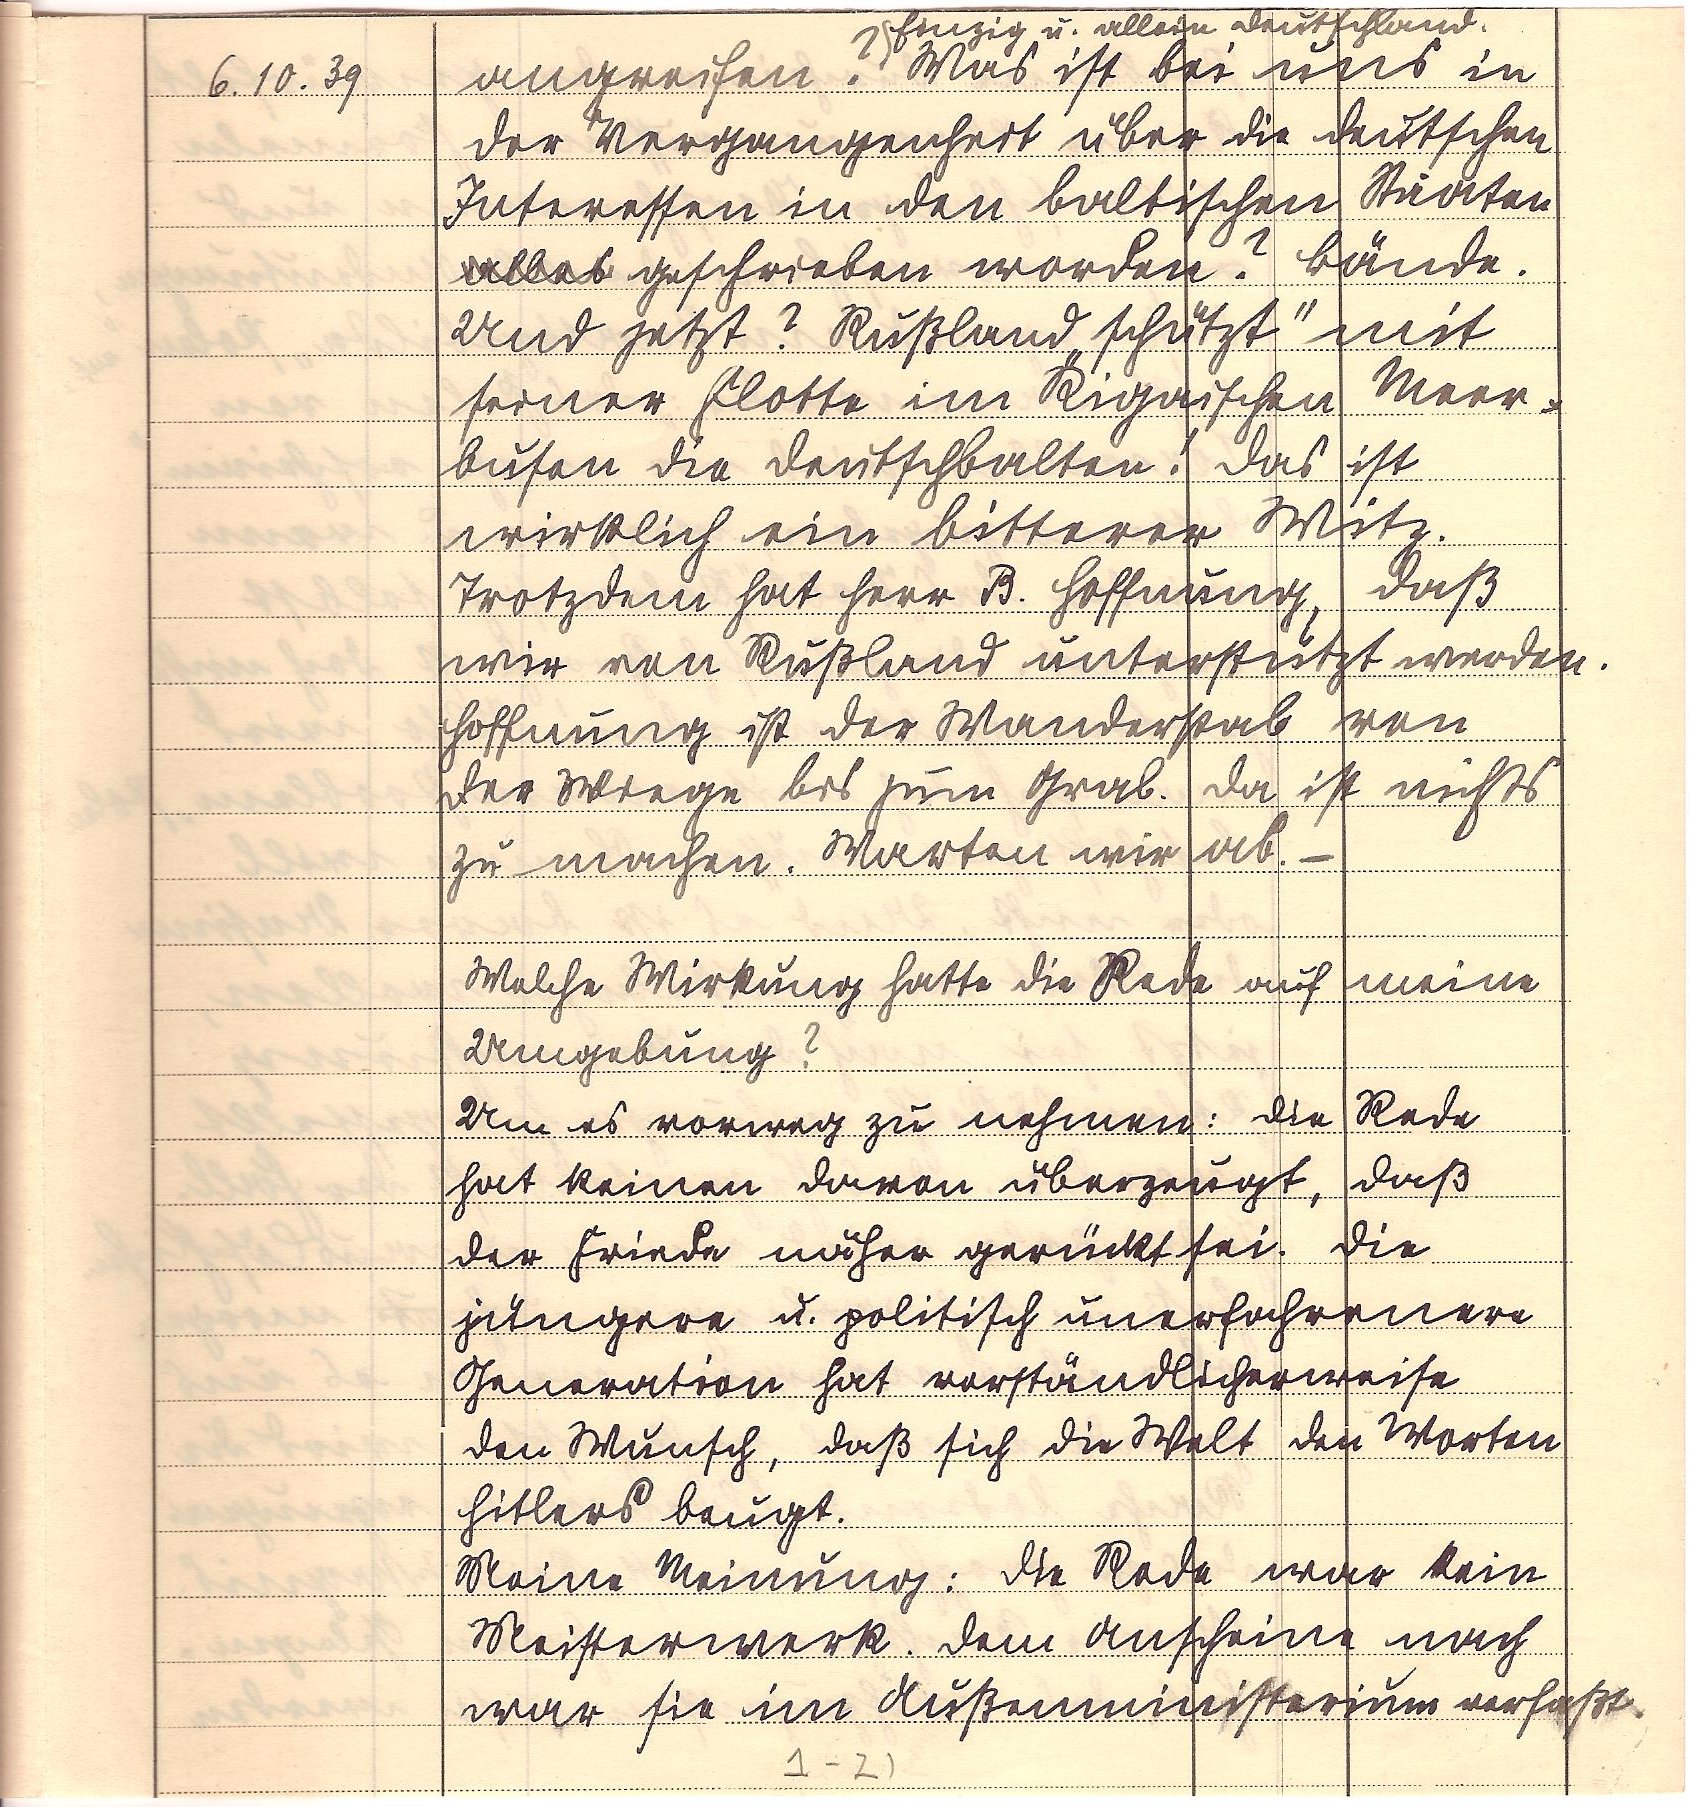 Einzig u. allein Deutschland.
6.10.39
angreifen? Was ist bei uns in
der Vergangenheit über die deutschen
Interessen in den baltischen Staaten
alles geschrieben worden? Bände.
Und jetzt? Rußland „schützt" mit
seiner Flotte im Rigaischen Meer-
busen die Deutschbalten! Das ist
wirklich ein bitterer Witz.
Trotzdem hat Herr B. Hoffnung, daß
wir von Rußland unterstützt werden.
Hoffnung ist der Wanderstab von
der Wiege bis zum Grab. Da ist nichts
zu machen. Warten wir ab. –
Welche Wirkung hatte die Rede auf meine
Umgebung?
Um es vorweg zu nehmen: Die Rede
hat keinen davon überzeugt, daß
der Friede näher gerückt sei. Die
jüngere u. politisch unerfahrenere
Generation hat verständlicherweise
den Wunsch, daß sich die Welt den Worten
Hitlers beugt.
Meine Meinung: Die Rede war kein
Meisterwerk. Dem Anscheine nach
war sie im Außenministerium verfaßt.
1-21